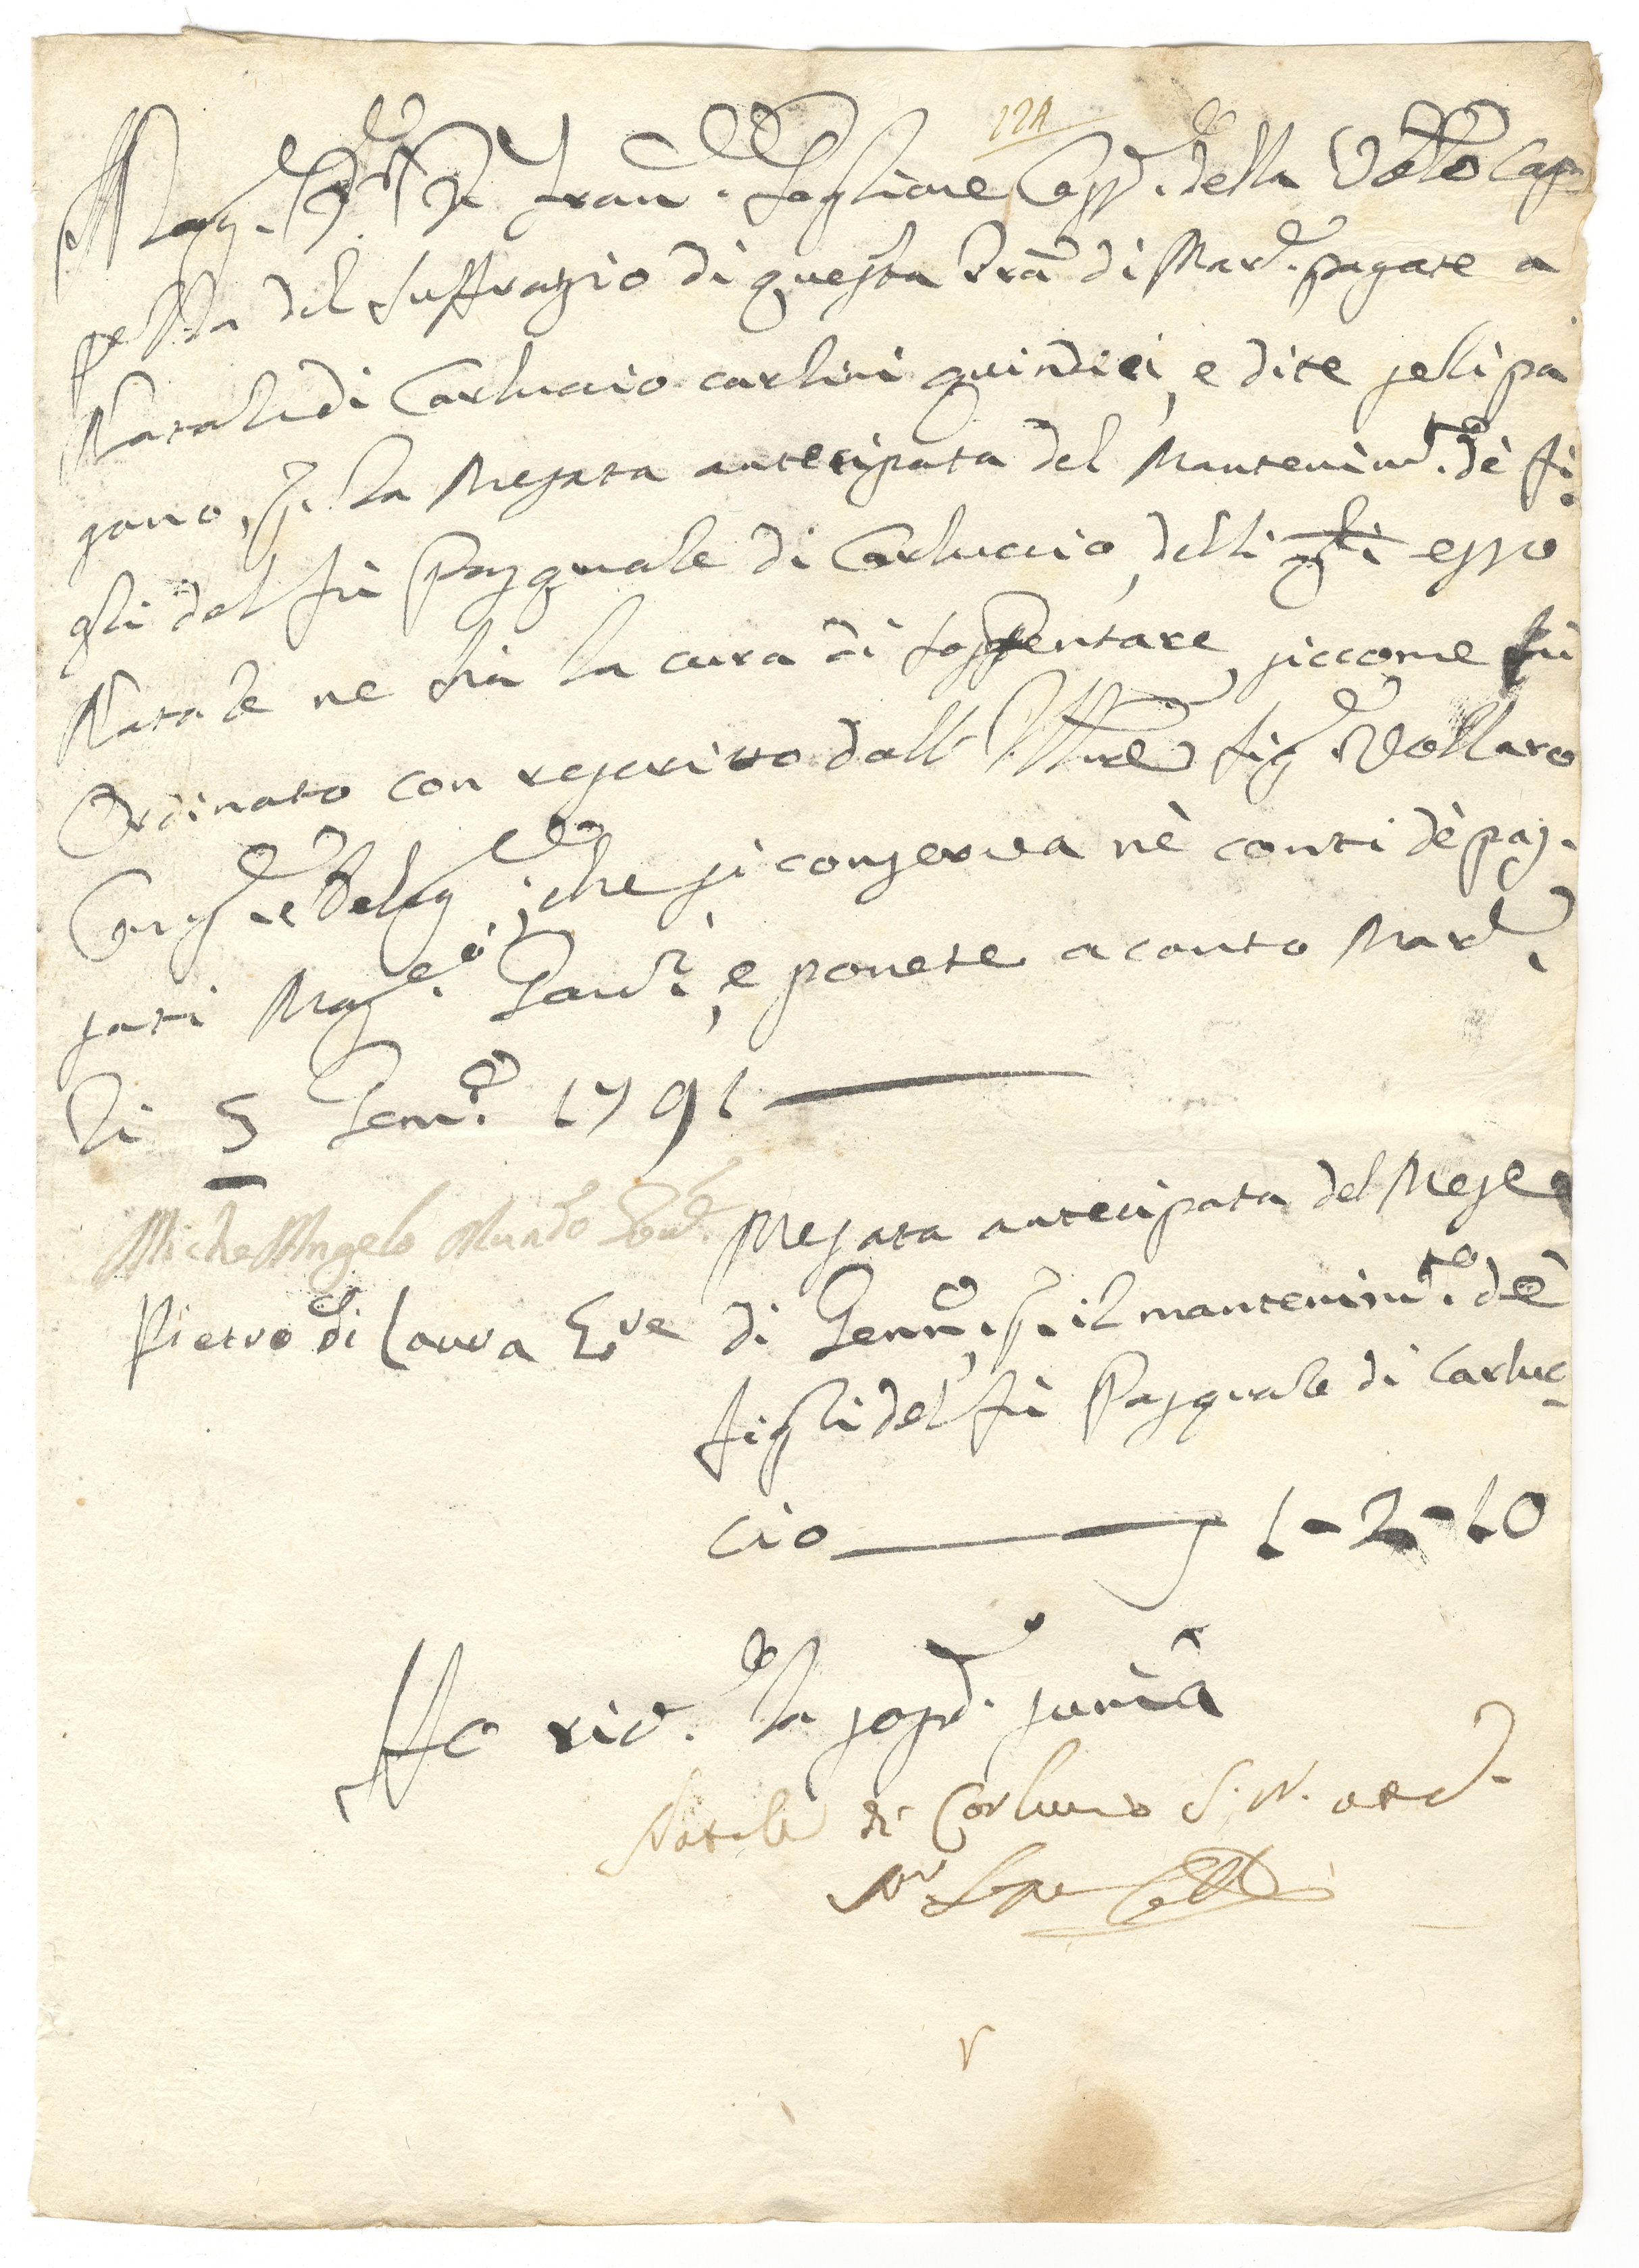 22A
Mag.ce Fran.co Saglione Cass.re della Ven. Cap
pella del Suffragio di questa Trã di Mar.e pagate a
Natale di Carluccio carlini quindici, e dite seli pa
gano, p. la Mesata antecipata del Mantenim.to dè fi=
gli del fù Pasquale di Carluccio, delli qli esso
Natale ne hà la cura di sostentare, siccome fù
Ordinato con rescritto dall' Ill.re Sig.re Vollaro
Cons.re e Deleg.to; che si conserva nè conti dè pas.
sati Mag.ci Gov.ri, e ponete a conto Mar.e
li 5 Genn.o 1791
MichelAngelo Mundo Gov.re
Pietro di Laura E.re
Mesata antecipata del Mese
di Genn.o, p. il mantenim.to dè
figli del fù Pasquale di Carluc-
cio 1-2-10
Ho ric.to la sopd.a suma
Natale di Carluccio
v